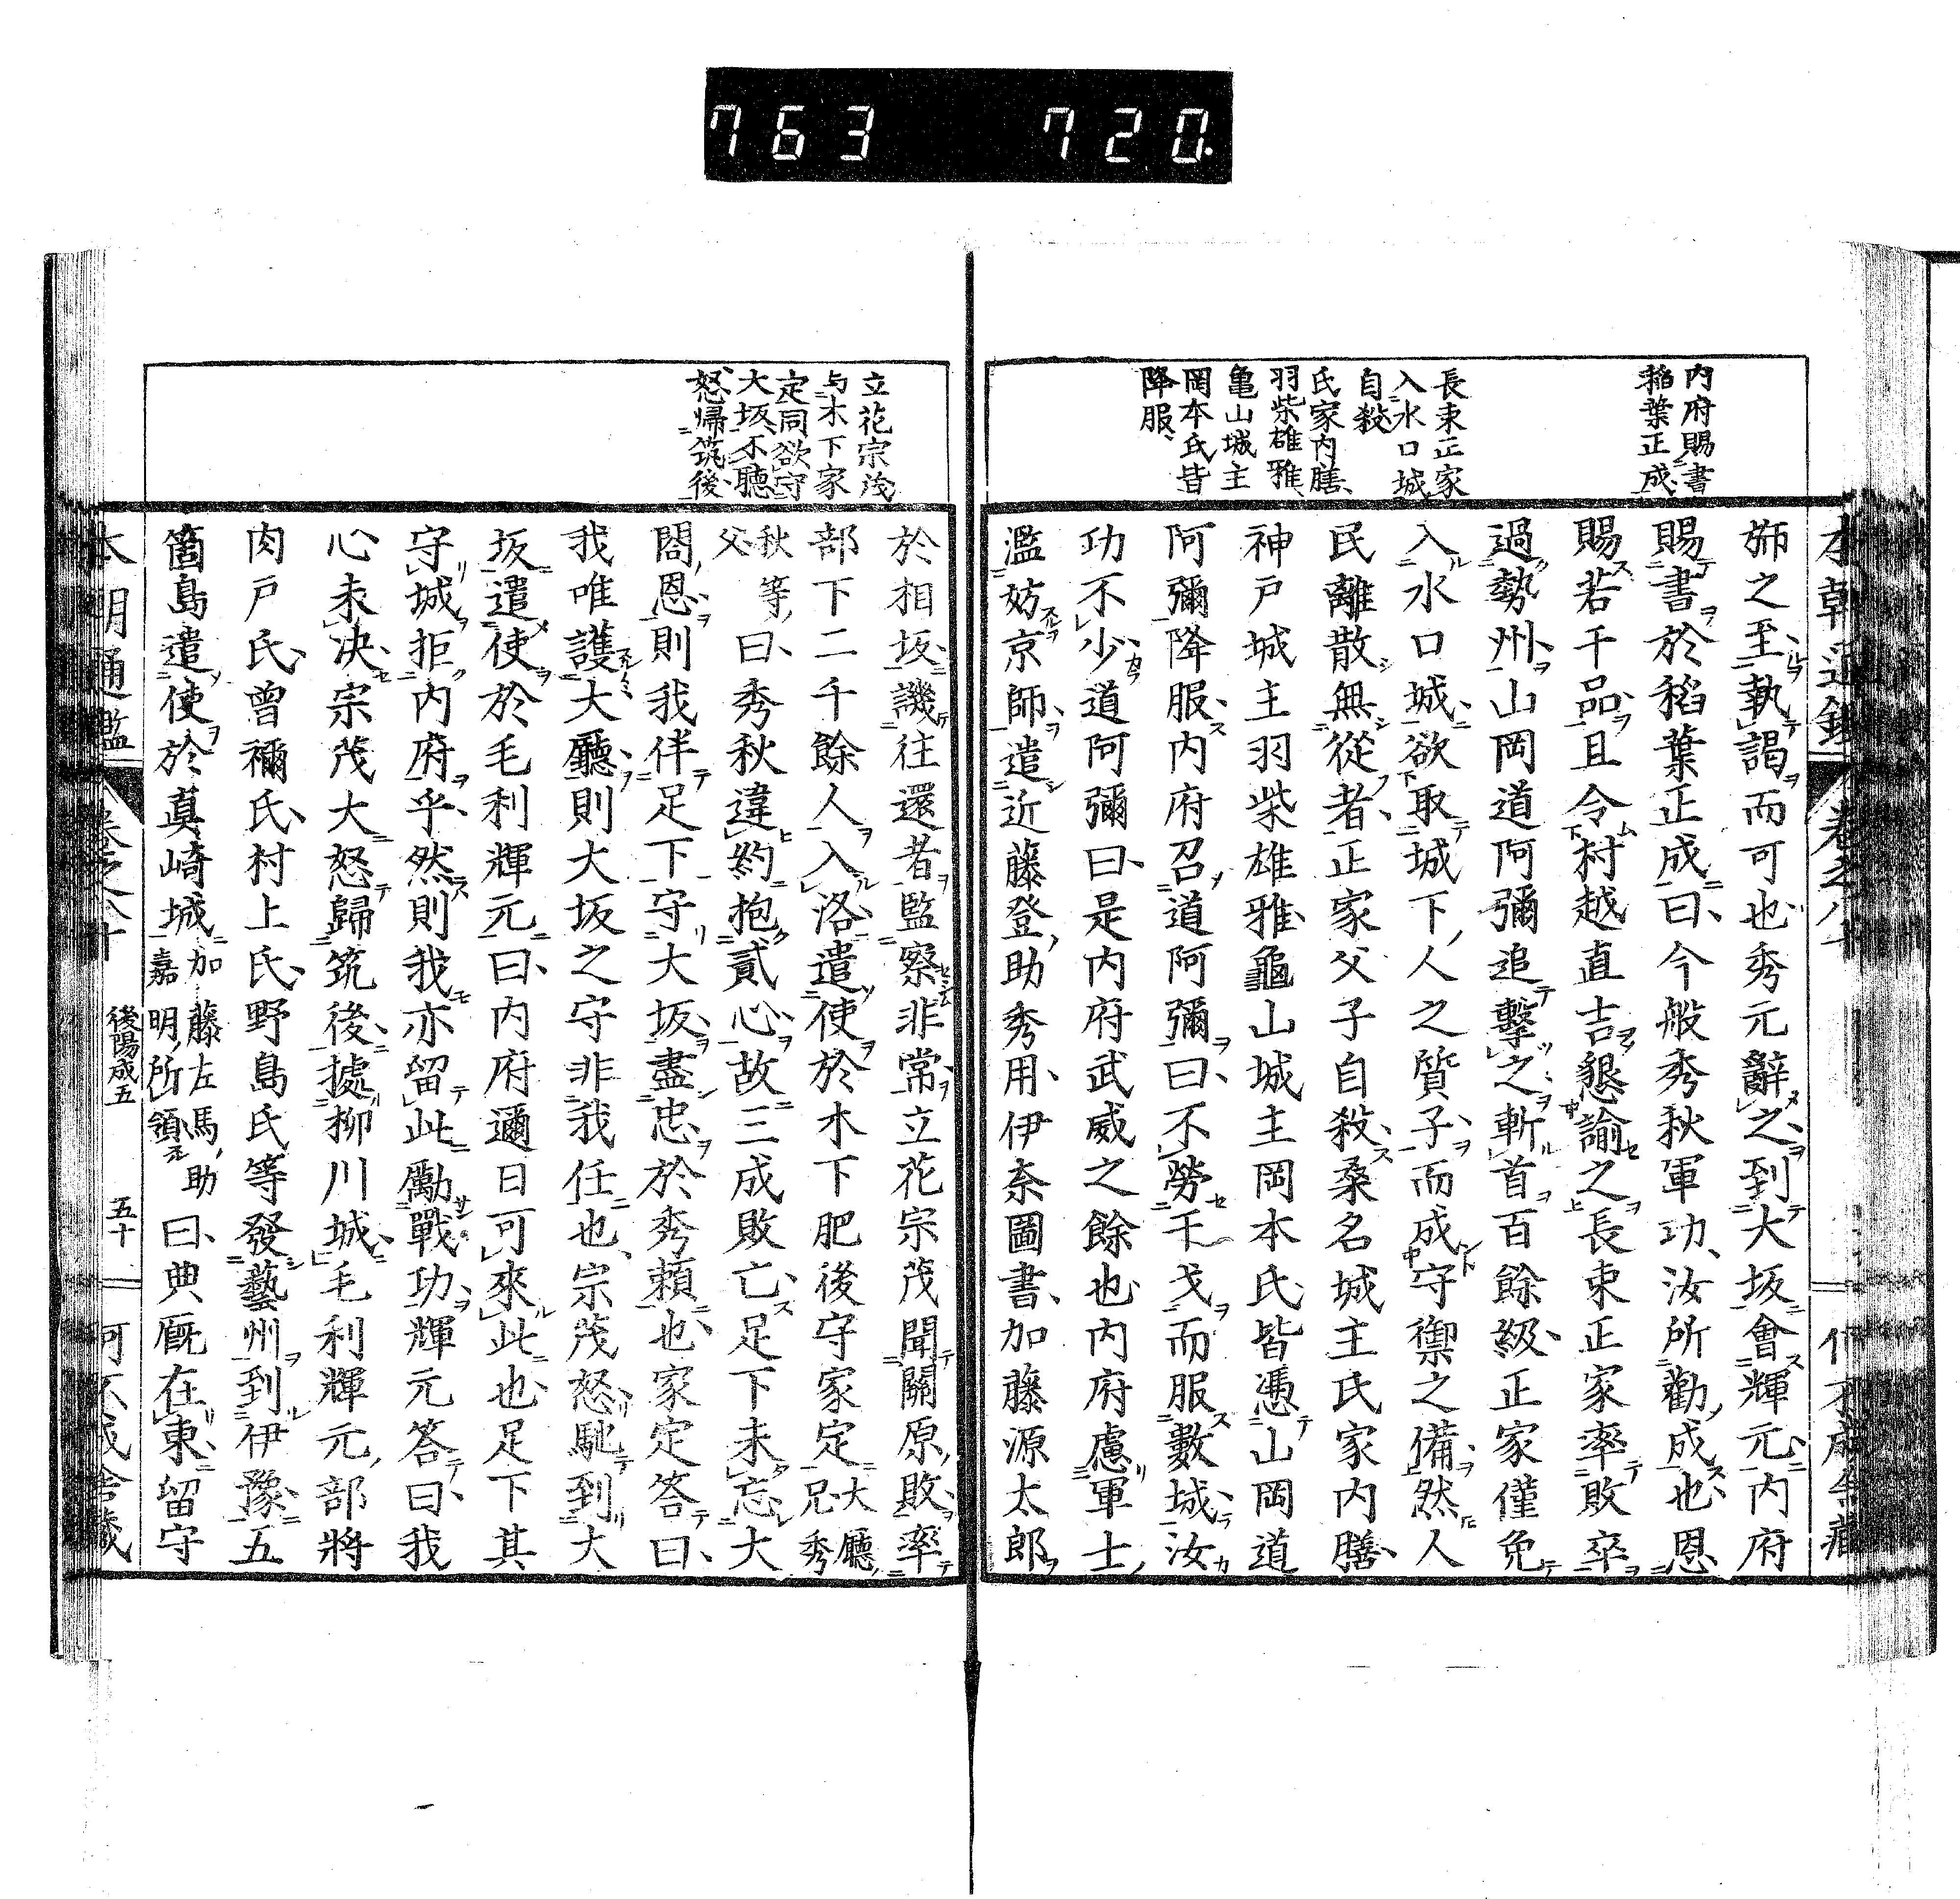 763 720.
内府賜書
稻葉正成
長束正家
入水口城
自殺
氏家内膳
羽柴雄雅
亀山城主
岡本氏皆
降服
師之至執謁而可也秀元辭之到大坂會輝元内府
賜書於稻葉正成曰今般秀秋軍功汝所勸成也恩
賜若干品且令村越直吉懇諭之長束正家率敗卒
過勢州山岡道阿彌追擊之斬首百餘級正家僅免
入水口城欲取城下人之質子而成守禦之備然人
民離散無從者正家父子自殺桑名城主氏家内膳
神戸城主羽柴雄雅龜山城主岡本氏皆憑山岡道
阿彌降服内府召道阿彌曰不勞干戈而服數城汝
功不少道阿彌曰是内府武威之餘也内府慮軍士
濫妨京師遣近藤登助秀用伊奈圖書加藤源太郎
立花宗茂
与木下家
定同欲守
大坂不聽
怒帰筑後
於相坂譏往還者監察非常立花宗茂聞關原敗率
部下二千餘人入洛遣使於木下肥後守家定大廳兄秀
秋父等曰秀秋違約抱貳心故三成敗亡足下未忘大
閤恩則我伴足下守大坂盡忠於秀賴也家定答曰
我唯護大廳則大坂之守非我任也宗茂怒馳到大
坂遣使於毛利輝元曰内府邇日可來此也足下其
守城拒内府乎然則我亦留此勵戰功輝元答曰我
心未决宗茂大怒歸筑後據柳川城毛利輝元部將
肉戸氏曾禰氏村上氏野島氏等發藝州到伊豫五
箇島遣使於真崎城加藤左馬助嘉明所領曰典厩在東留守
本朝通鑑 卷之八十 後陽成五 五十